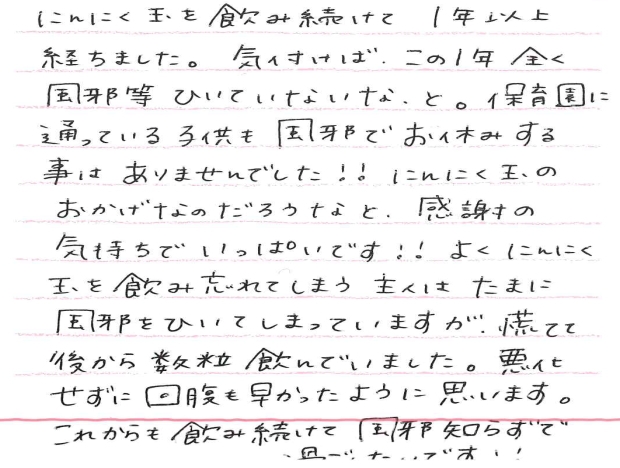 にんにく玉を飲み続けて 1年以上
経ちました。気付けば、この1年 全く
風邪等 ひいていないな、と。保育園に
通っている 子供も 風邪で お休み する
事は ありませんでした!! にんにく玉の
おかげなのだろうなと、感謝の
気持ちで いっぱいです!! よく にんにく
玉を 飲み忘れてしまう 主人は たまに
風邪をひいてしまっていますが、慌てて
後から 数粒 飲んでいました。悪化
せずに 回腹も 早かったように 思います。
これからも 飲み続けて 風邪知らずで
過ごしたいです!!